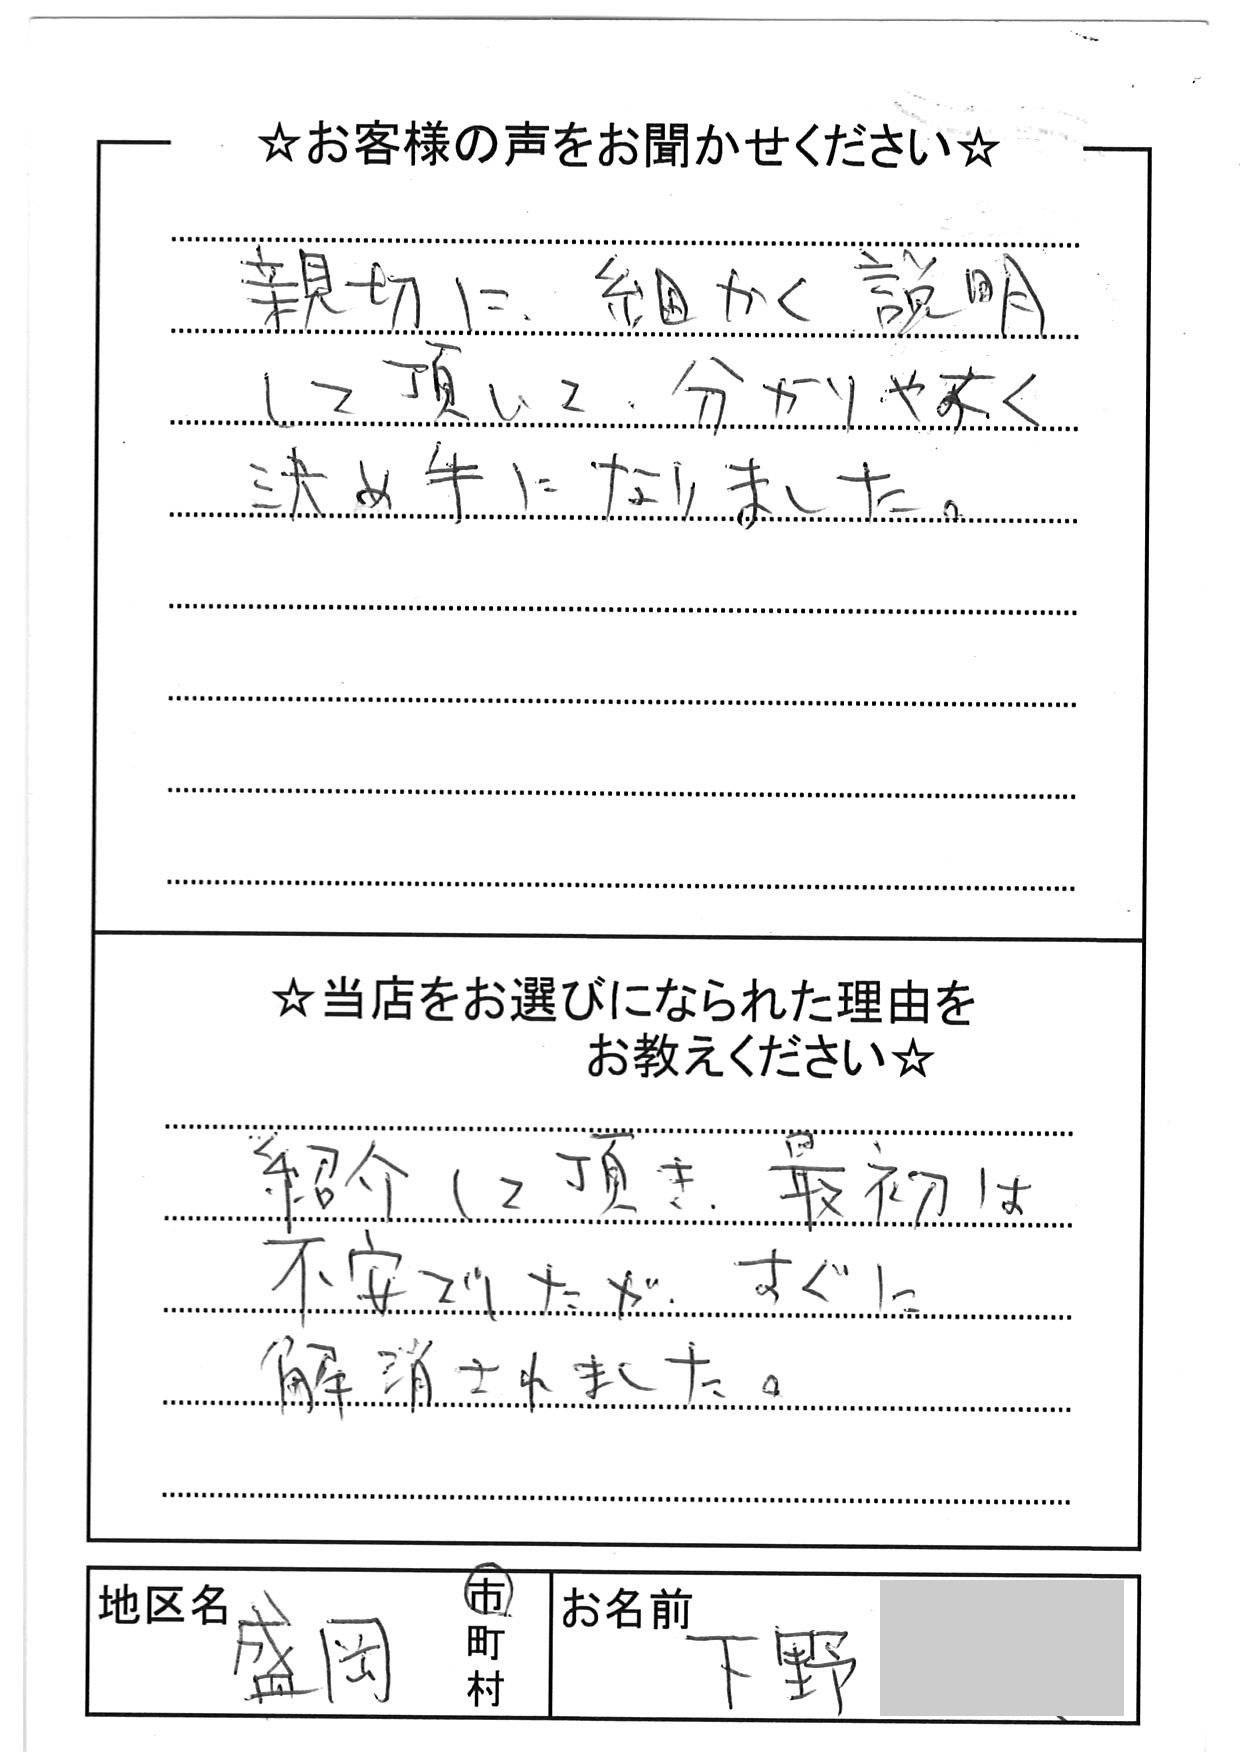 ☆お客様の声をお聞かせください☆
親切に、細かく説明
して頂いて、分かりやすく
決め手になりました。
☆当店をお選びになられた理由を
お教えください☆
紹介して頂き、最初は
不安でしたが、すぐに
解消されました。
地区名 盛岡 市
町
村
お名前 下野